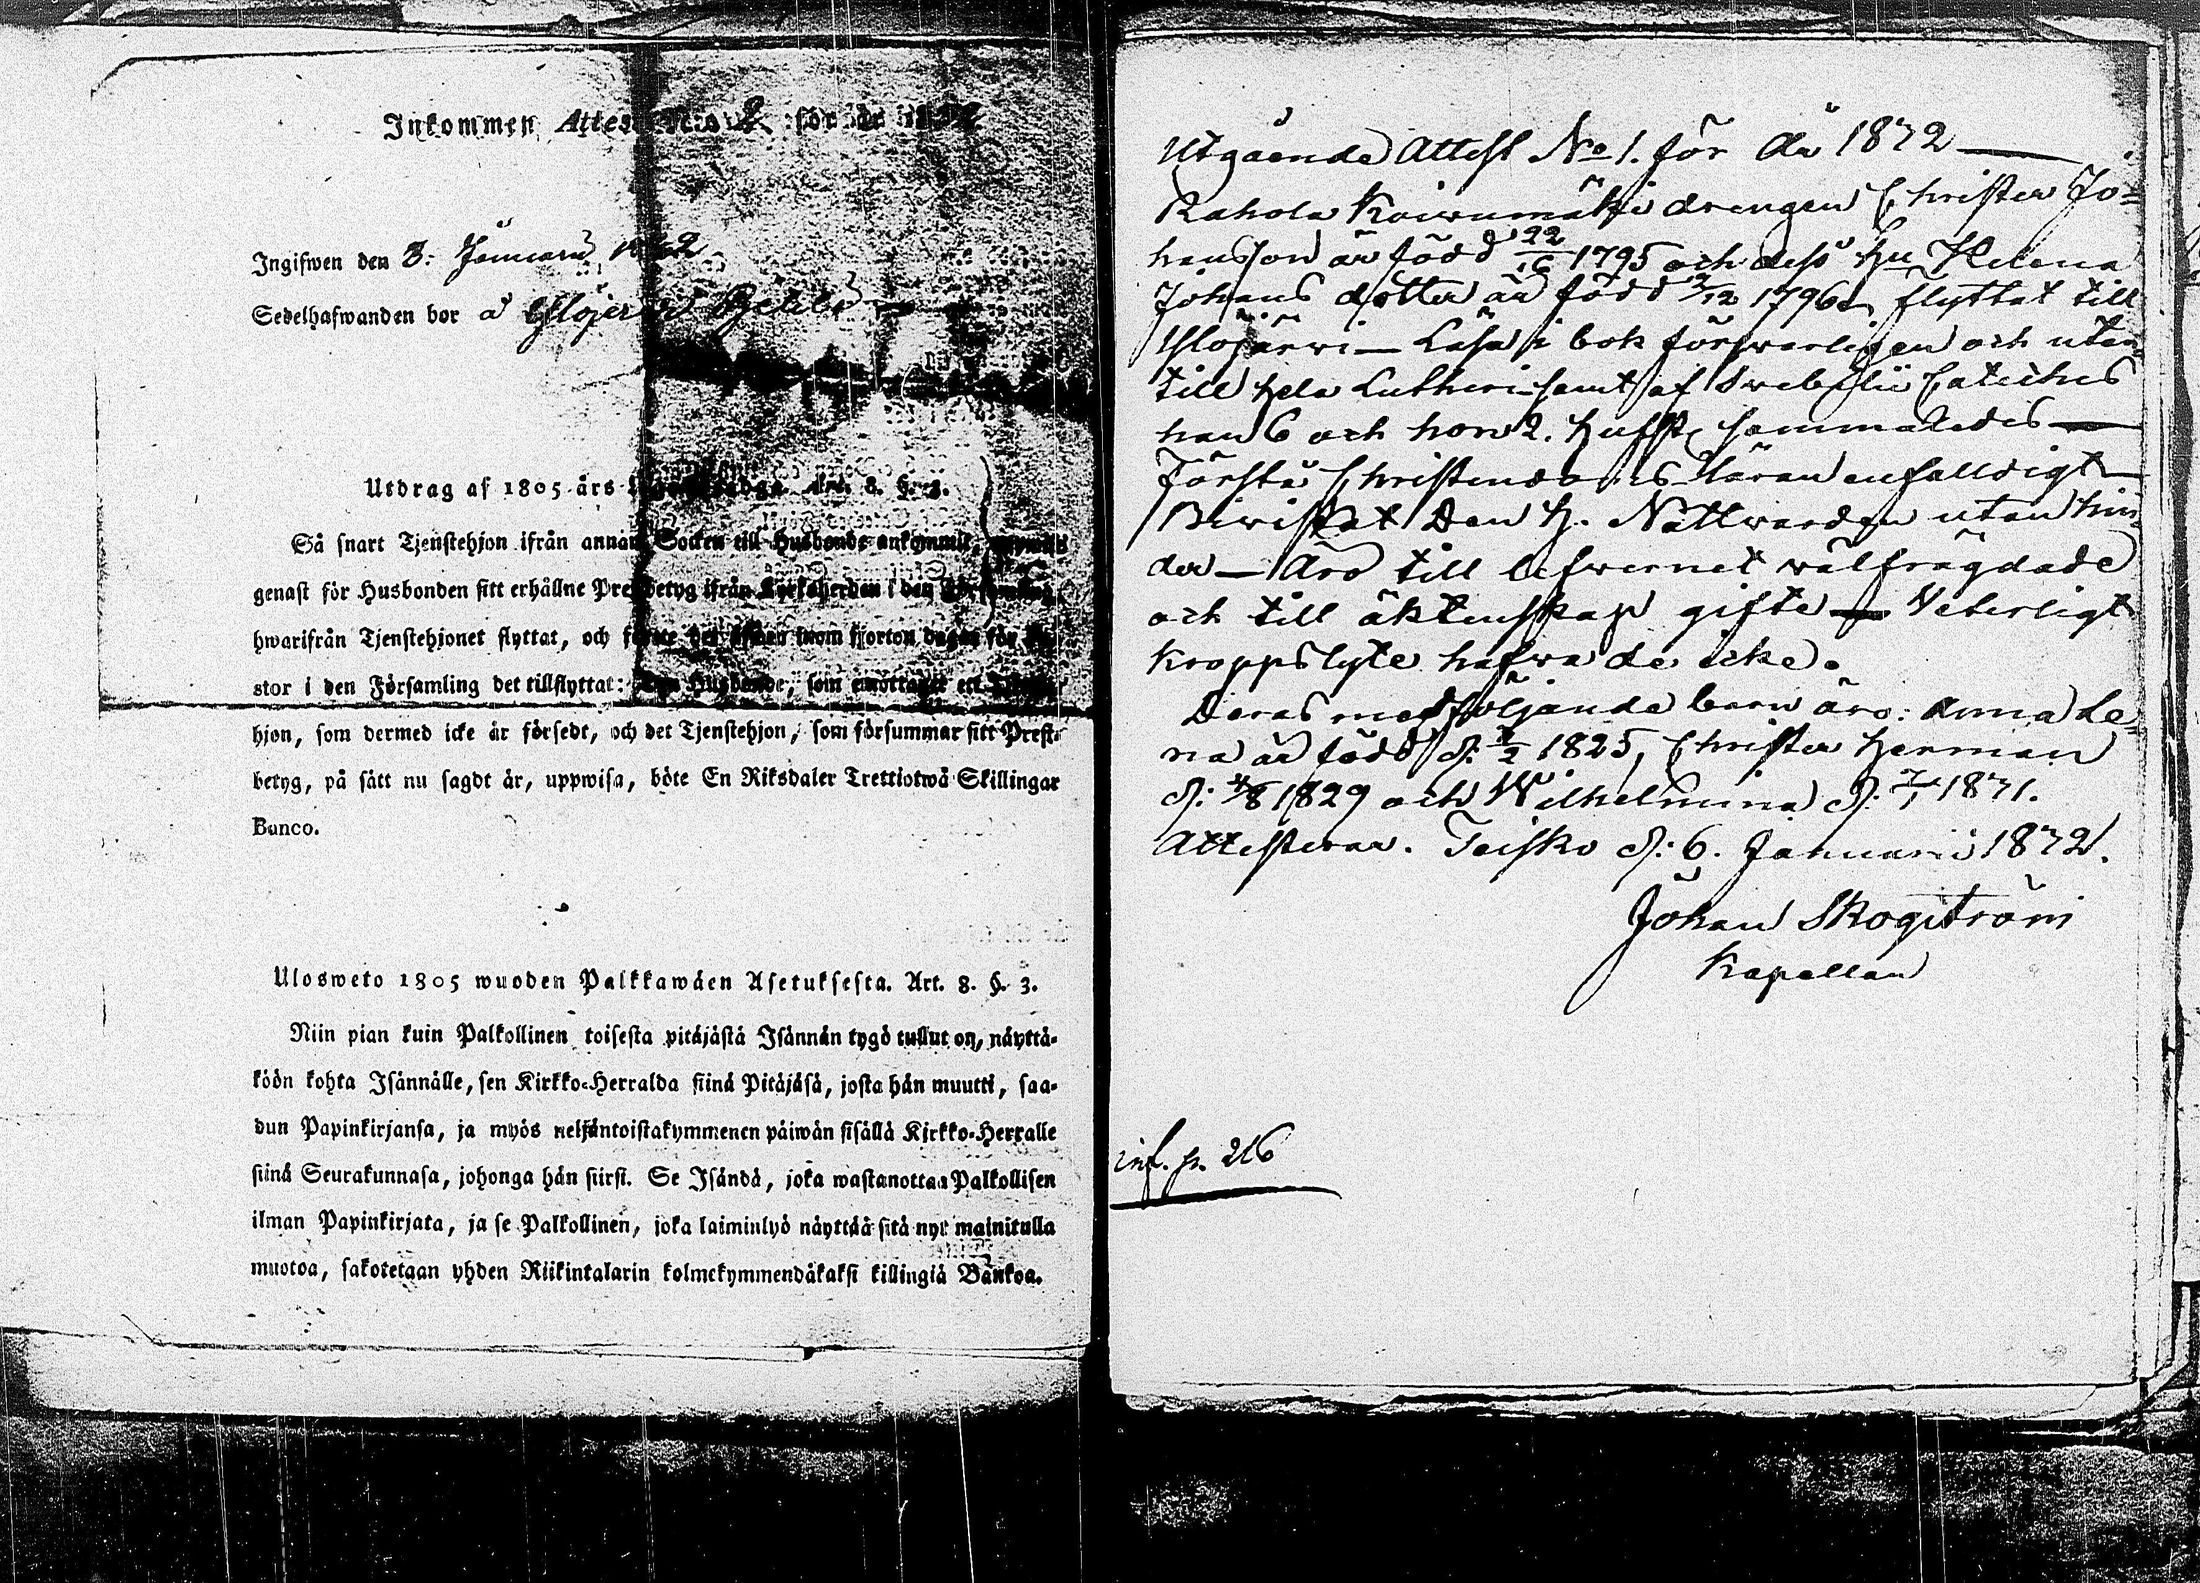 Inkommen Attest N:o 2 för år
Ingifwen den 8: Januari
Sedelhafwanden bor å
Utdrag af 1805 års Art. 8. §. 3.
Så snart Tjenstehjon ifrån annan Socken till Husbonde ankommit,
genast för Husbonden sitt erhållne Prestbetyg ifrån Kyrkoherden i den Församling,
hwarifrån Tjenstehjonet flyttat, och inom fjorton dagar för
stor i den Församling det tillflyttat: Husbonde, som emottager ett
hjon, som dermed icke är försedt, och det Tjenstehjon, som försummar sitt Prest-
betyg, på sätt nu sagdt är, uppwisa, böte En Riksdaler Trettiotwå Skillingar
Banco.
Ulosweto 1805 wuoden Palkkawäen Asetuksesta. Art. 8. §. 3.
Niin pian kuin Palkollinen toisesta pitäjästä Isännän tygö tullut on, näyttä-
köön kohta Isännälle, sen Kirkko-Herralda siinä Pitäjäsä, josta hän muutti, saa-
dun Papinkirjansa, ja myös neljäntoistakymmenen päiwän sisällä Kirkko-Herralle
siinä Seurakunnasa, johonga hän siirsi. Se Isändä, joka wastanottaa Palkollisen
ilman Papinkirjata, ja se Palkollinen, joka laiminlyö näyttää sitä nyt mainitulla
muotoa, sakotetaan yhden Riikintalarin kolmekymmendäkaksi killingiä Bankoa.
Utgående Attest No 1. för år 1832
Rahola Koiwumäki drengen Christer Jo=
hansson är född 22/16 1795 och dess hu Helena
Johans dotter är född 2/12 1796, flyttat till
Ylöjärwi — Läsa i bok förswarligen och utan=
till hela Lutheri samt af Swebilii Cateches
han 6 och hon 2. hufst. sammaledes —
Förstå Christendomsläran enfalldigt —
Biwistat Den H. Nattwarden utan hin=
der — Äro till lefwernet wälfrägdade
och till äktenskap gifte — Veterligt
kroppslyte hafwa de icke.
Deras medföljande barn äro: Anna Le=
na är född d: /2 1825, Christer Herman
d: 4/8 1829 och Wilhelmina d: 7/1 1831.
Attesterar. Teisko d: 6. Januarii 1832.
Johan Skogström
Kapellan
inf. p. 216